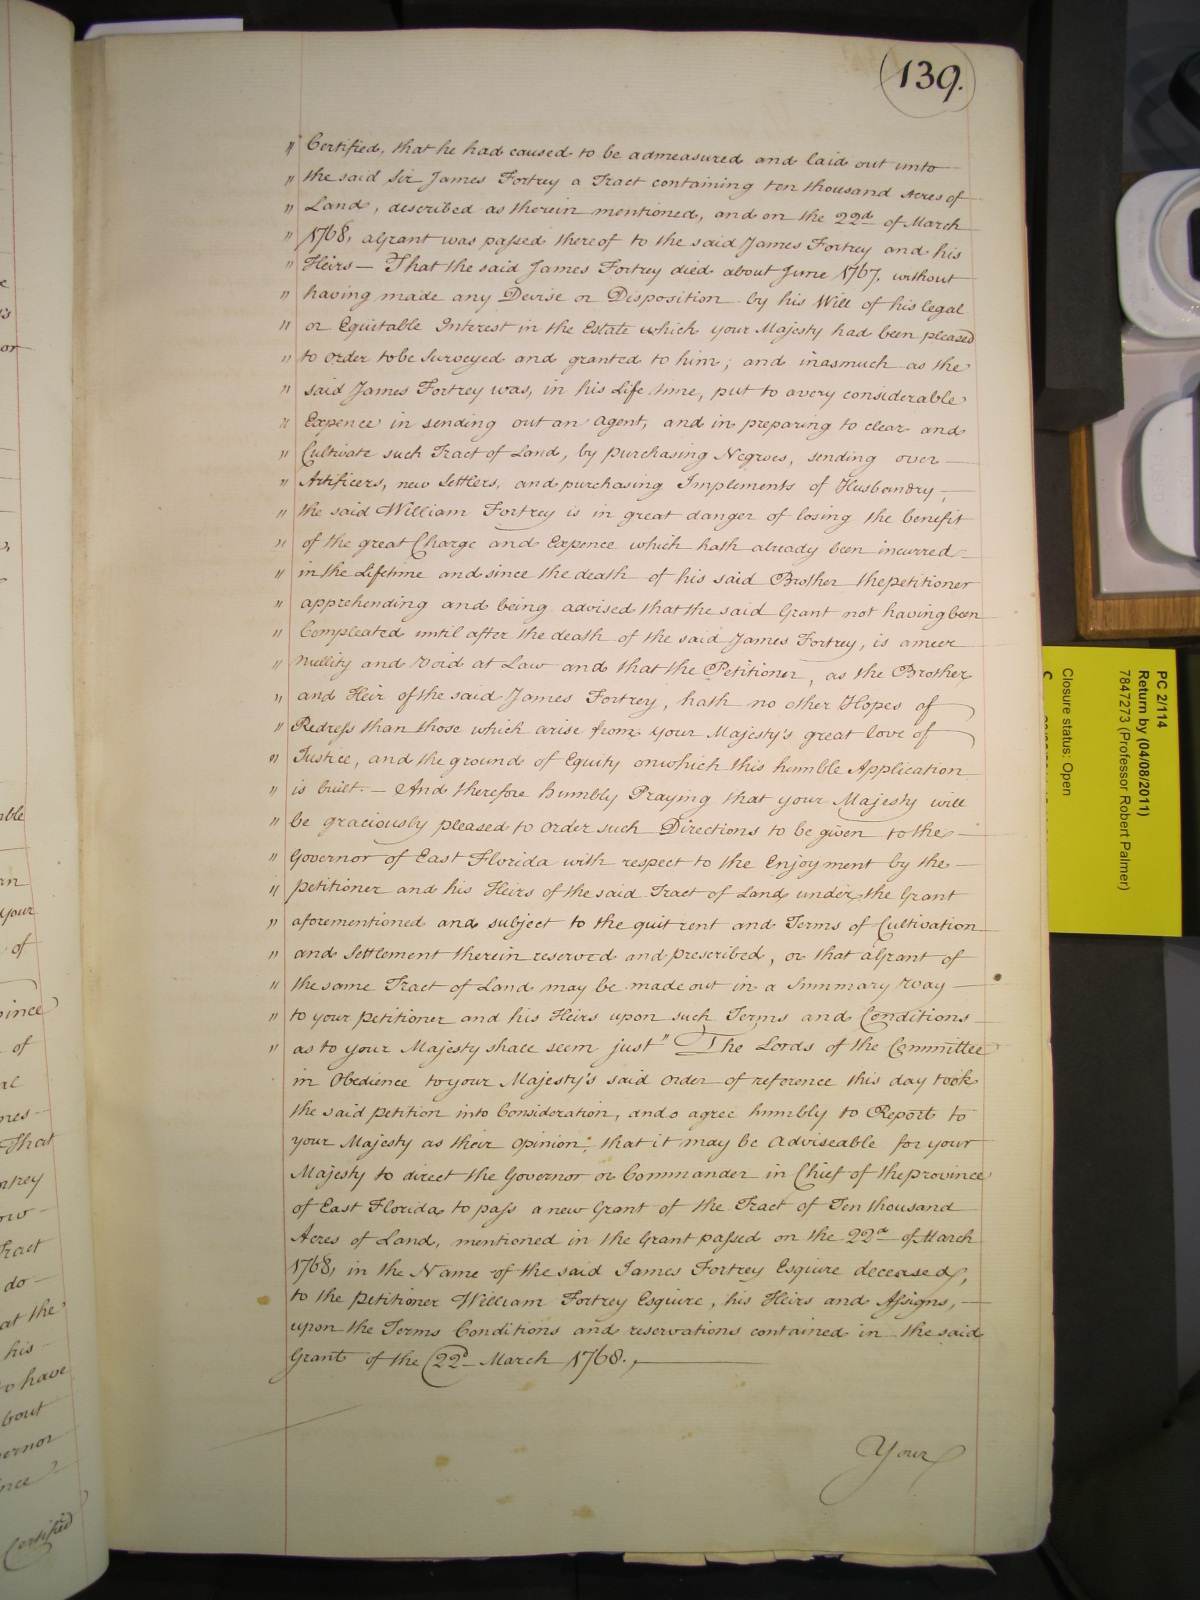 139.
" Certified, that he had caused to be admeasured and laid out unto
" the said Sir James Fortrey a Tract containing ten thousand Acres of
" Land, described as therein mentioned, and on the 22d of March
" 1768, a Grant was passed thereof to the said James Fortrey and his
" Heirs — That the said James Fortrey died about June 1767, without
" having made any Devise or Disposition by his Will of his legal
" or Equitable Interest in the Estate which your Majesty had been pleased
" to order to be Surveyed and granted to him; and inasmuch as the
" said James Fortrey was, in his Life time, put to a very considerable
" Expence in sending out an Agent, and in preparing to clear and
" Cultivate such Tract of Land, by purchasing Negroes, sending over
" Artificers, new Settlers, and purchasing Implements of Husbandry,
" the said William Fortrey is in great danger of losing the benefit
" of the great Charge and Expence which hath already been incurred
" in the Lifetime and since the death of his said Brother the petitioner
" apprehending and being advised that the said Grant not having been
" Compleated until after the death of the said James Fortrey, is a meer
" nullity and Void at Law and that the Petitioner, as the Brother
" and Heir of the said James Fortrey, hath no other Hopes of
" Redress than those which arise from your Majesty's great love of
" Justice, and the ground of Equity on which this humble Application
" is built. — And therefore humbly Praying that your Majesty will
" be graciously pleased to order such Directions to be given to the
" Governor of East Florida with respect to the Enjoyment by the
" petitioner and his Heirs of the said Tract of Land under the Grant
" aforementioned and subject to the quit rent and Terms of Cultivation
" and Settlement therein reserved and prescribed, or that a Grant of
" the same Tract of Land may be made out in a Summary Way
" to your petitioner and his Heirs upon such Terms and Conditions
" as to your Majesty shall seem just" The Lords of the Committee
in Obedience to your Majesty's said order of reference this day took
the said petition into Consideration, and do agree humbly to Report to
your Majesty as their opinion, that it may be adviseable for your
Majesty to direct the Governor or Commander in Chief of the province
of East Florida to pass a new Grant of the Tract of Ten thousand
Acres of Land, mentioned in the Grant passed on the 22d of March
1768, in the Name of the said James Fortrey Esquire deceased,
to the petitioner William Fortrey Esquire, his Heirs and Assigns,
upon the Terms Conditions and reservations contained in the said
Grant of the 22d March 1768.
Your
PC 2/114
Return by (04/08/2011)
7847273 (Professor Robert Palmer)
Closure status: Open
or
able
an
of
ince
of
al
That
Tract
do
at the
his
to have
about
ernor
Certified